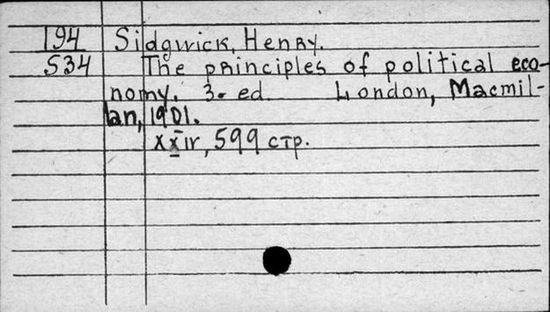 194 Sidgwick, Henry.
S34 The principles of political eco-
nomy. 3. ed. London, Macmil-
lan, 1901.
xxiv, 599 стр.